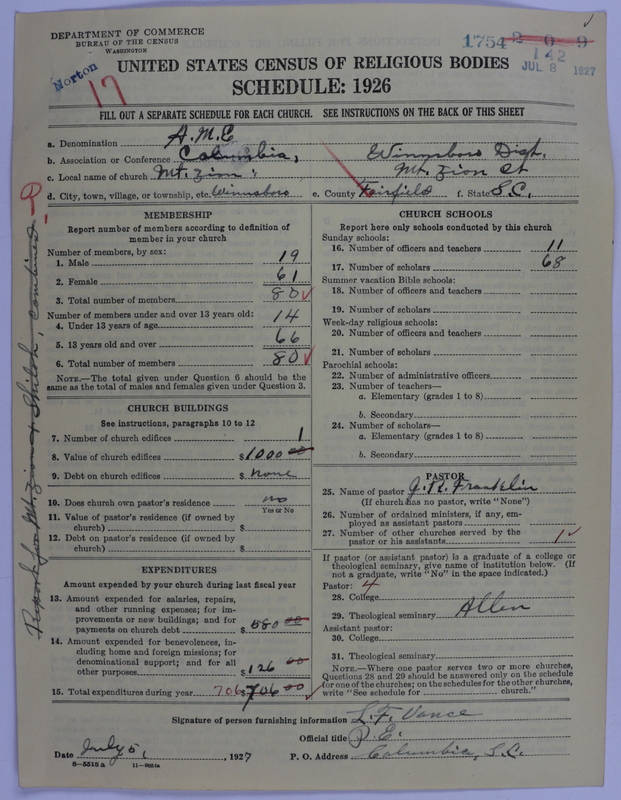 DEPARTMENT OF COMMERCE
BUREAU OF THE CENSUS
WASHINGTON
1754 209
142
JUL 8 1927
Norton
17
UNITED STATES CENSUS OF RELIGIOUS BODIES
SCHEDULE: 1926
FILL OUT A SEPARATE SCHEDULE FOR EACH CHURCH. SEE INSTRUCTIONS ON THE BACK OF THIS SHEET
a. Denomination A.M.E
b. Association or Conference Columbia, Winnsboro Dist.
c. Local name of church Mt. Zion, Mt. Zion Ct
d. City, town, village, or township, etc. Winnsboro e. County Fairfield f. State S.C.
Report for Mt. Zion & Shiloh, Combined
MEMBERSHIP
Report number of members according to definition of
member in your church
Number of members, by sex:
1. Male 19
2. Female 61
3. Total number of members 80
Number of members under and over 13 years old:
4. Under 13 years of age 14
5. 13 years old and over 66
6. Total number of members 80
NOTE.—The total given under Question 6 should be the
same as the total of males and females given under Question 3.
CHURCH BUILDINGS
See instructions, paragraphs 10 to 12
7. Number of church edifices 1
8. Value of church edifices $1000 00
9. Debt on church edifices $ None
10. Does church own pastor's residence no
Yes or No
11. Value of pastor's residence (if owned by
church) $
12. Debt on pastor's residence (if owned by
church) $
EXPENDITURES
Amount expended by your church during last fiscal year
13. Amount expended for salaries, repairs,
and other running expenses; for im-
provements or new buildings; and for
payments on church debt $580 00
14. Amount expended for benevolences, in-
cluding home and foreign missions; for
denominational support; and for all
other purposes $126 00
15. Total expenditures during year 706 $706 00
CHURCH SCHOOLS
Report here only schools conducted by this church
Sunday schools:
16. Number of officers and teachers 11
17. Number of scholars 68
Summer vacation Bible schools:
18. Number of officers and teachers
19. Number of scholars
Week-day religious schools:
20. Number of officers and teachers
21. Number of scholars
Parochial schools:
22. Number of administrative officers
23. Number of teachers—
a. Elementary (grades 1 to 8)
b. Secondary
24. Number of scholars—
a. Elementary (grades 1 to 8)
b. Secondary
PASTOR
25. Name of pastor J.R. Franklin
(If church has no pastor, write "None")
26. Number of ordained ministers, if any, em-
ployed as assistant pastors
27. Number of other churches served by the
pastor or his assistants 1
If pastor (or assistant pastor) is a graduate of a college or
theological seminary, give name of institution below. (If
not a graduate, write "No" in the space indicated.)
Pastor: 4
28. College
29. Theological seminary Allen
Assistant pastor:
30. College
31. Theological seminary
NOTE.—Where one pastor serves two or more churches,
Questions 28 and 29 should be answered only on the schedule
for one of the churches; on the schedules for the other churches,
write "See schedule for church."
Signature of person furnishing information L.F. Vance
Official title P.E.
Date July 5, , 1927 P. O. Address Columbia, S.C.
8—5518a